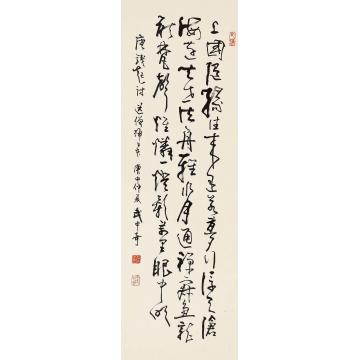 上國隨緣住來途若夢行浮天滄
海遠去世法舟輕水月通禪寂魚龍
聽梵聲惟憐一燈影萬里眼中明
唐錢起詩 送僧歸日本 庚申仲夏 武中奇